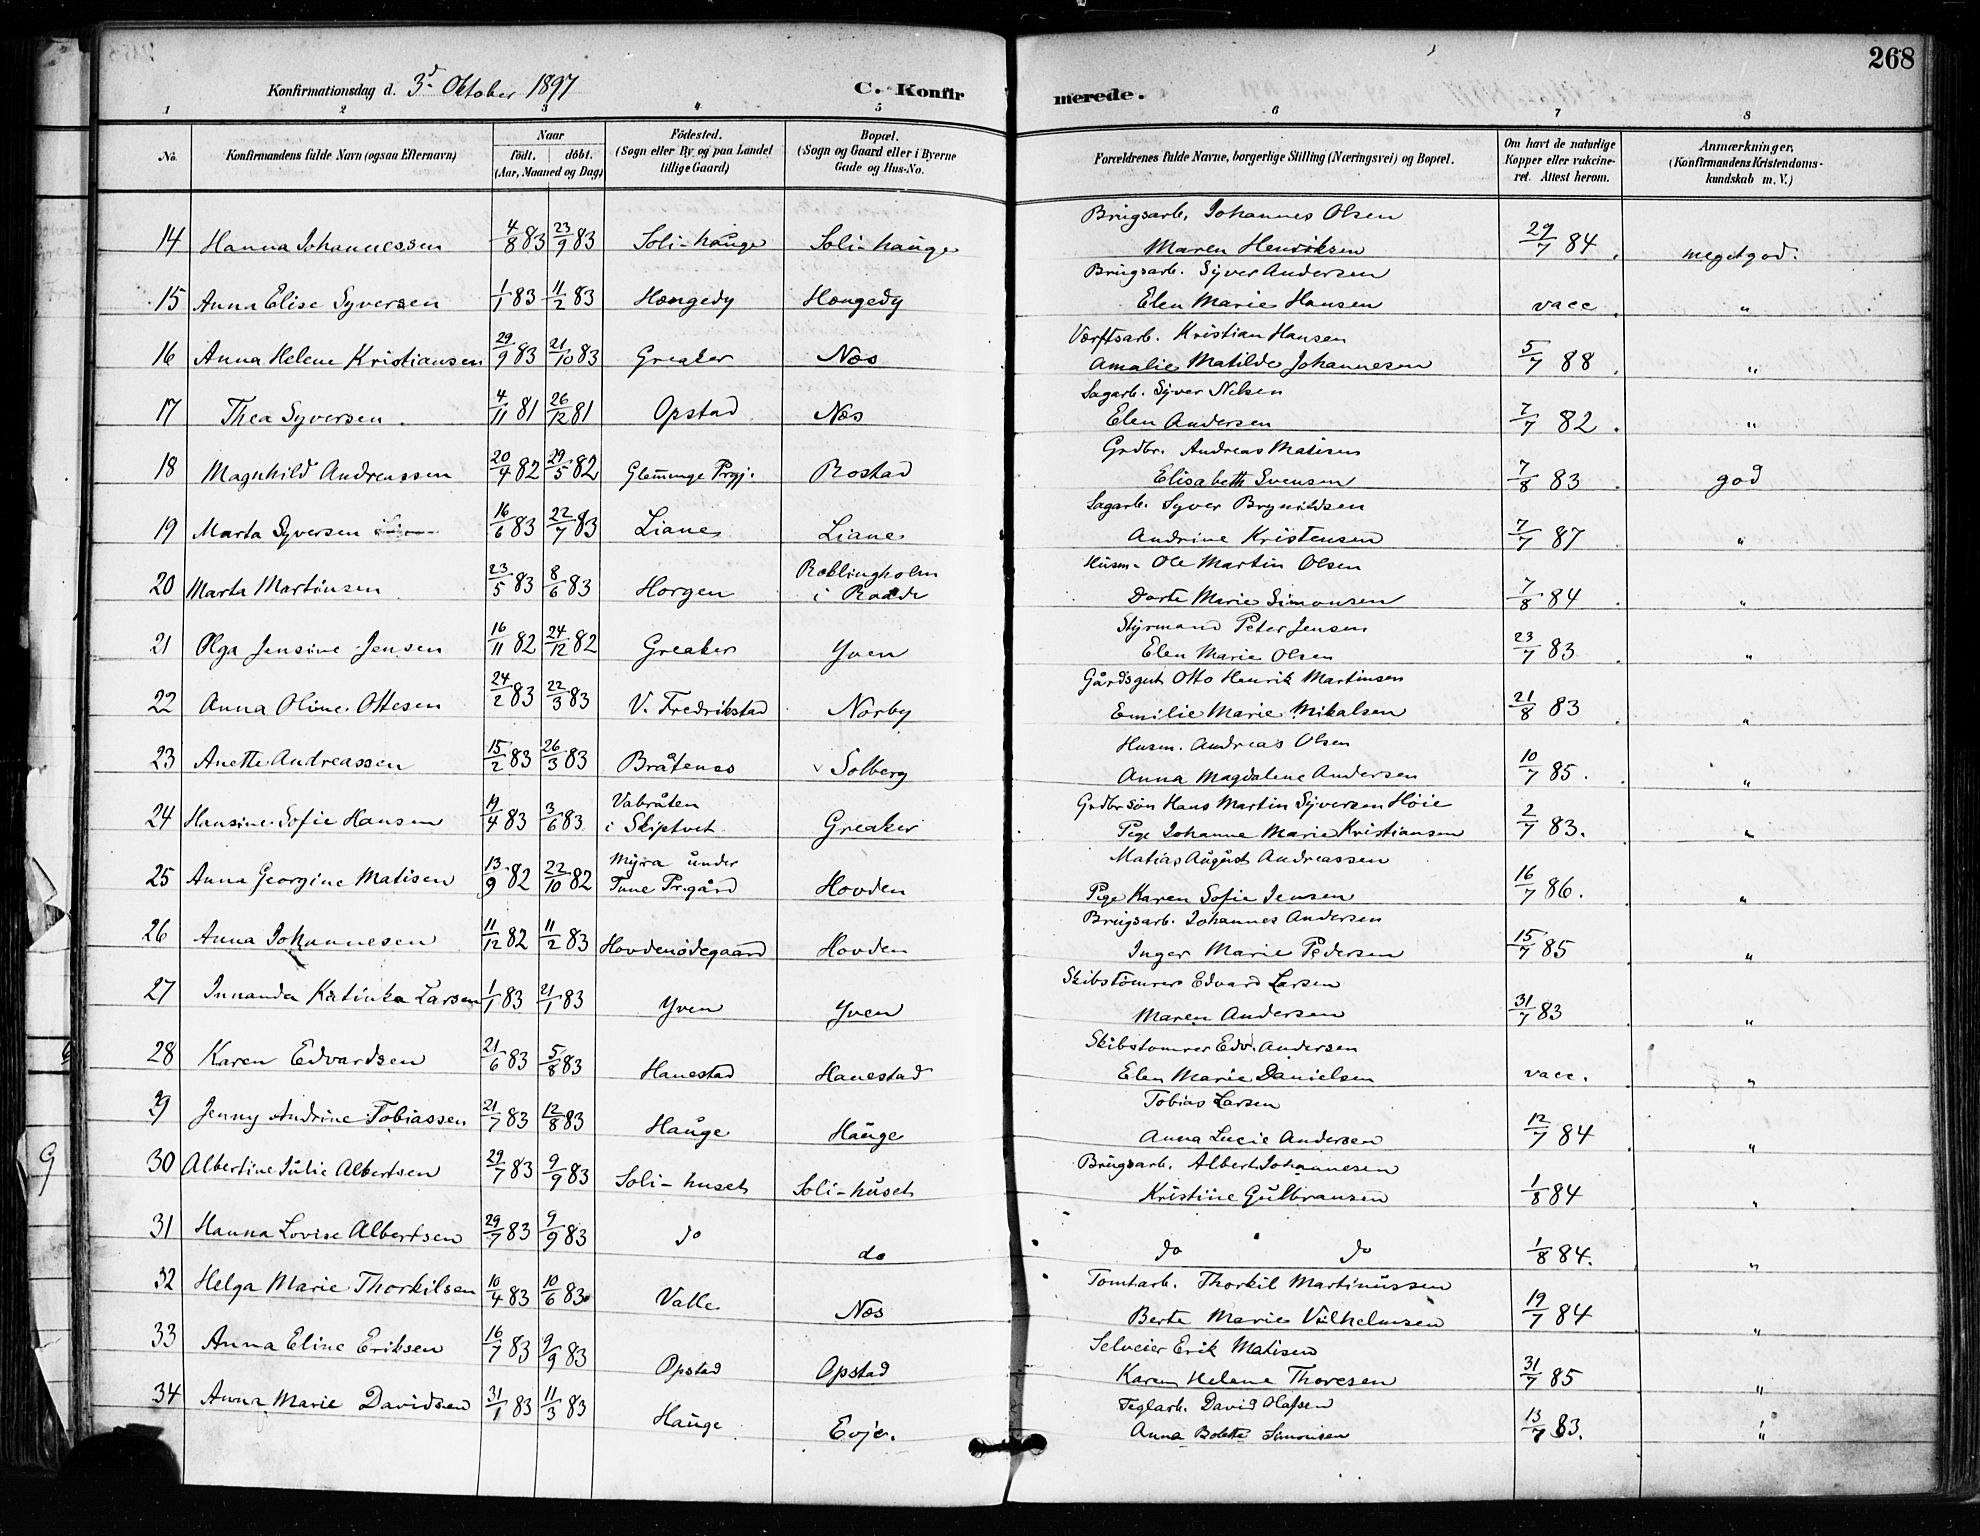 268
Konfirmationsdag d. 3d Oktober 1897 C. Konfirmerede.
1 2 3 4 5 6 7 8
No. Konfirmandens fulde Navn (ogsaa Efternavn) Naar født. døbt. (Aar, Maaned og Dag) Fødested. (Sogn eller By og paa Landet tillige Gaard) Bopæl. (Sogn og Gaard eller i Byerne Gade og Hus-No. Forældrenes fulde Navne, borgerlige Stilling (Næringsvei) og Bopæl. Om havt de naturlige Kopper eller vakcineret. Attest herom. Anmærkninger, (Konfirmandens Kristendomskundskab m. V.)
14 Hanna Johannessen 4/8 83 23/9 83 Soli-hauge Soli-hauge Brugsarb. Johannes Olsen Maren Henriksen 29/7 84 meget god.
15 Anna Elise Syversen 1/1 83 11/2 83 Hængedy Hængedy Brugsarb. Syver Andersen Elen Marie Hansen vacc. "
16 Anna Helene Kristiansen 29/9 83 21/10 83 Greaker Næs Værftsarb. Kristian Hansen Amalie Matilde Johannesen 5/7 88 "
17 Thea Syversen 4/11 81 26/12 81 Opstad Næs Sagarb. Syver Nilsen Elen Andersen 7/7 82 "
18 Magnhild Andreassen 20/4 82 29/5 82 Glemminge Prgj. Rostad Grdbr. Andreas Matisen Elisabeth Svensen 7/8 83 god
19 Marta Syversen 16/6 83 22/7 83 Liane Liane Sagarb. Syver Brynildsen Andrine Kristensen 7/7 87 "
20 Marta Martinsen 23/5 83 8/6 83 Horgen Ræklingholm i Raade Husm. Ole Martin Olsen Dorte Marie Simonsen 7/8 84 "
21 Olga Jensine Jensen 16/11 82 24/12 82 Greaker Yven Styrmand Peter Jensen Elen Marie Olsen 23/7 83 "
22 Anna Oline Ottesen 24/2 83 22/3 83 V. Fredrikstad Norby Gårdsgut Otto Henrik Martinsen Emilie Marie Mikalsen 21/8 83 "
23 Anette Andreassen 15/2 83 26/3 83 Bråtenes Solberg Husm. Andreas Olsen Anna Magdalene Andersen 10/7 85. "
24 Hansine Sofie Hansen 19/4 83 3/6 83 Vabråten i Skiptvet Greaker Grdbr søn Hans Martin Syversen Høie Pige Johanne Marie Kristiansen 2/7 83. "
25 Anna Georgine Matisen 13/9 82 22/10 82 Myra under Tune Prgård Hovden Matias August Andreassen Pige Karen Sofie Jensen 16/7 86. "
26 Anna Johannesen 11/12 82 11/2 83 Hovdenødegaard Hovden Brugsarb. Johannes Andersen Inger Marie Pedersen 15/7 85 "
27 Innanda Katinka Larsen 1/1 83 21/1 83 Yven Yven Skibstømrer Edvard Larsen Maren Andersen 31/7 83 "
28 Karen Edvardsen 21/6 83 5/8 83 Hanestad Hanestad Skibstømrer Edv. Andersen Elen Marie Danielsen vacc. "
29 Jenny Andrine Tobiassen 21/7 83 12/8 83 Hauge Hauge Tobias Larsen Anna Lucie Andersen 12/7 84 "
30 Albertine Julie Albertsen 29/7 83 9/9 83 Soli-huset Soli-huset Brugsarb. Albert Johannesen Kristine Gulbransen 1/8 84 "
31 Hanna Lovise Albertsen 29/7 83 9/9 83 do do do do 1/8 84. "
32 Helga Marie Thorkilsen 10/4 83 10/6 83 Valle Næs Tomtarb. Thorkil Martinussen Berte Marie Vilhelmsen 19/7 84 "
33 Anna Eline Eriksen 16/7 83 9/9 83 Opstad Opstad Selveier Erik Matisen Karen Helene Thoresen 31/7 85 "
34 Anna Marie Davidsen 31/1 83 11/3 83 Hauge Evje. Teglarb. David Olafsen Anna Bolette Simonsen 13/7 83. "